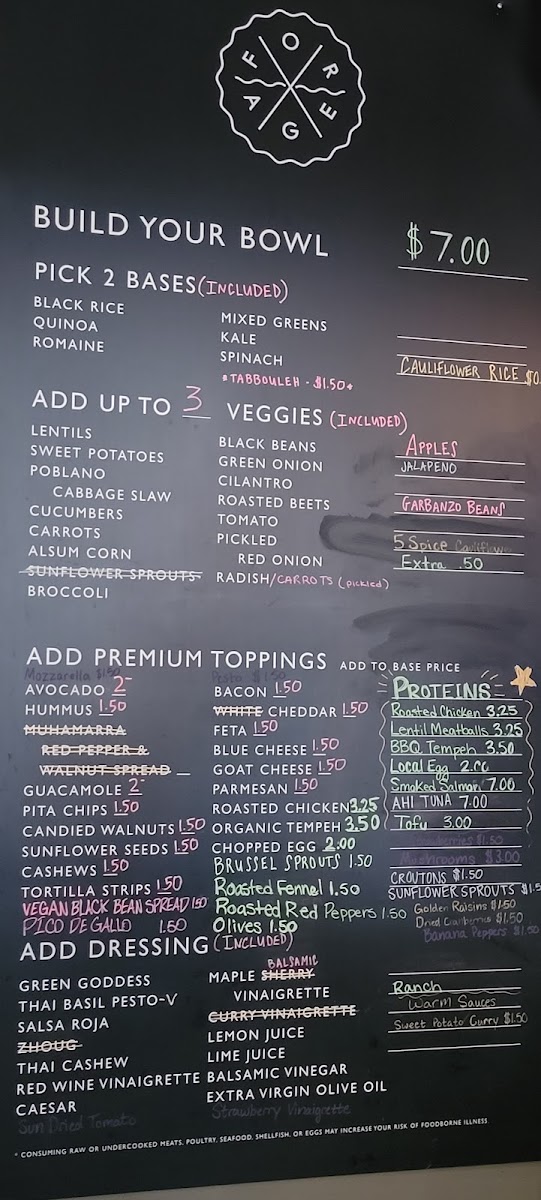 FORAGE
BUILD YOUR BOWL
$7.00
PICK 2 BASES (INCLUDED)
BLACK RICE
QUINOA
ROMAINE
MIXED GREENS
KALE
SPINACH
*TABBOULEH - $1.50*
CAULIFLOWER RICE
ADD UP TO 3 VEGGIES (INCLUDED)
LENTILS
SWEET POTATOES
POBLANO
CABBAGE SLAW
CUCUMBERS
CARROTS
ALSUM CORN
SUNFLOWER SPROUTS
BROCCOLI
BLACK BEANS
GREEN ONION
CILANTRO
ROASTED BEETS
TOMATO
PICKLED
RED ONION
RADISH/CARROTS (pickled)
APPLES
JALAPENO
GARBANZO BEANS
5 Spice Cauliflower
Extra .50
ADD PREMIUM TOPPINGS ADD TO BASE PRICE
Mozzarella $1.50
AVOCADO 2-
HUMMUS 1.50
MUHAMARRA
RED PEPPER &
WALNUT SPREAD
GUACAMOLE 2-
PITA CHIPS 1.50
CANDIED WALNUTS 1.50
SUNFLOWER SEEDS 1.50
CASHEWS 1.50
TORTILLA STRIPS 1.50
VEGAN BLACK BEAN SPREAD 1.50
PICO DE GALLO 1.50
Pesto $1.50
BACON 1.50
WHITE CHEDDAR 1.50
FETA 1.50
BLUE CHEESE 1.50
GOAT CHEESE 1.50
PARMESAN 1.50
ROASTED CHICKEN 3.25
ORGANIC TEMPEH 3.50
CHOPPED EGG 2.00
BRUSSEL SPROUTS 1.50
Roasted Fennel 1.50
Roasted Red Peppers 1.50
Olives 1.50
PROTEINS
Roasted Chicken 3.25
Lentil Meatballs 3.25
BBQ Tempeh 3.50
Local Egg 2.00
Smoked Salmon 7.00
AHI TUNA 7.00
Tofu 3.00
$1.50
Mushrooms $3.00
CROUTONS $1.50
SUNFLOWER SPROUTS $1.5
Golden Raisins $1.50
Dried Cranberries $1.50
Banana Peppers $1.50
ADD DRESSING (INCLUDED)
GREEN GODDESS
THAI BASIL PESTO-V
SALSA ROJA
ZHOUG
THAI CASHEW
RED WINE VINAIGRETTE
CAESAR
Sun Dried Tomato
BALSAMIC
MAPLE SHERRY
VINAIGRETTE
CURRY VINAIGRETTE
LEMON JUICE
LIME JUICE
BALSAMIC VINEGAR
EXTRA VIRGIN OLIVE OIL
Strawberry Vinaigrette
Ranch
Warm Sauces
Sweet Potato Curry $1.50
* CONSUMING RAW OR UNDERCOOKED MEATS, POULTRY, SEAFOOD, SHELLFISH, OR EGGS MAY INCREASE YOUR RISK OF FOODBORNE ILLNESS